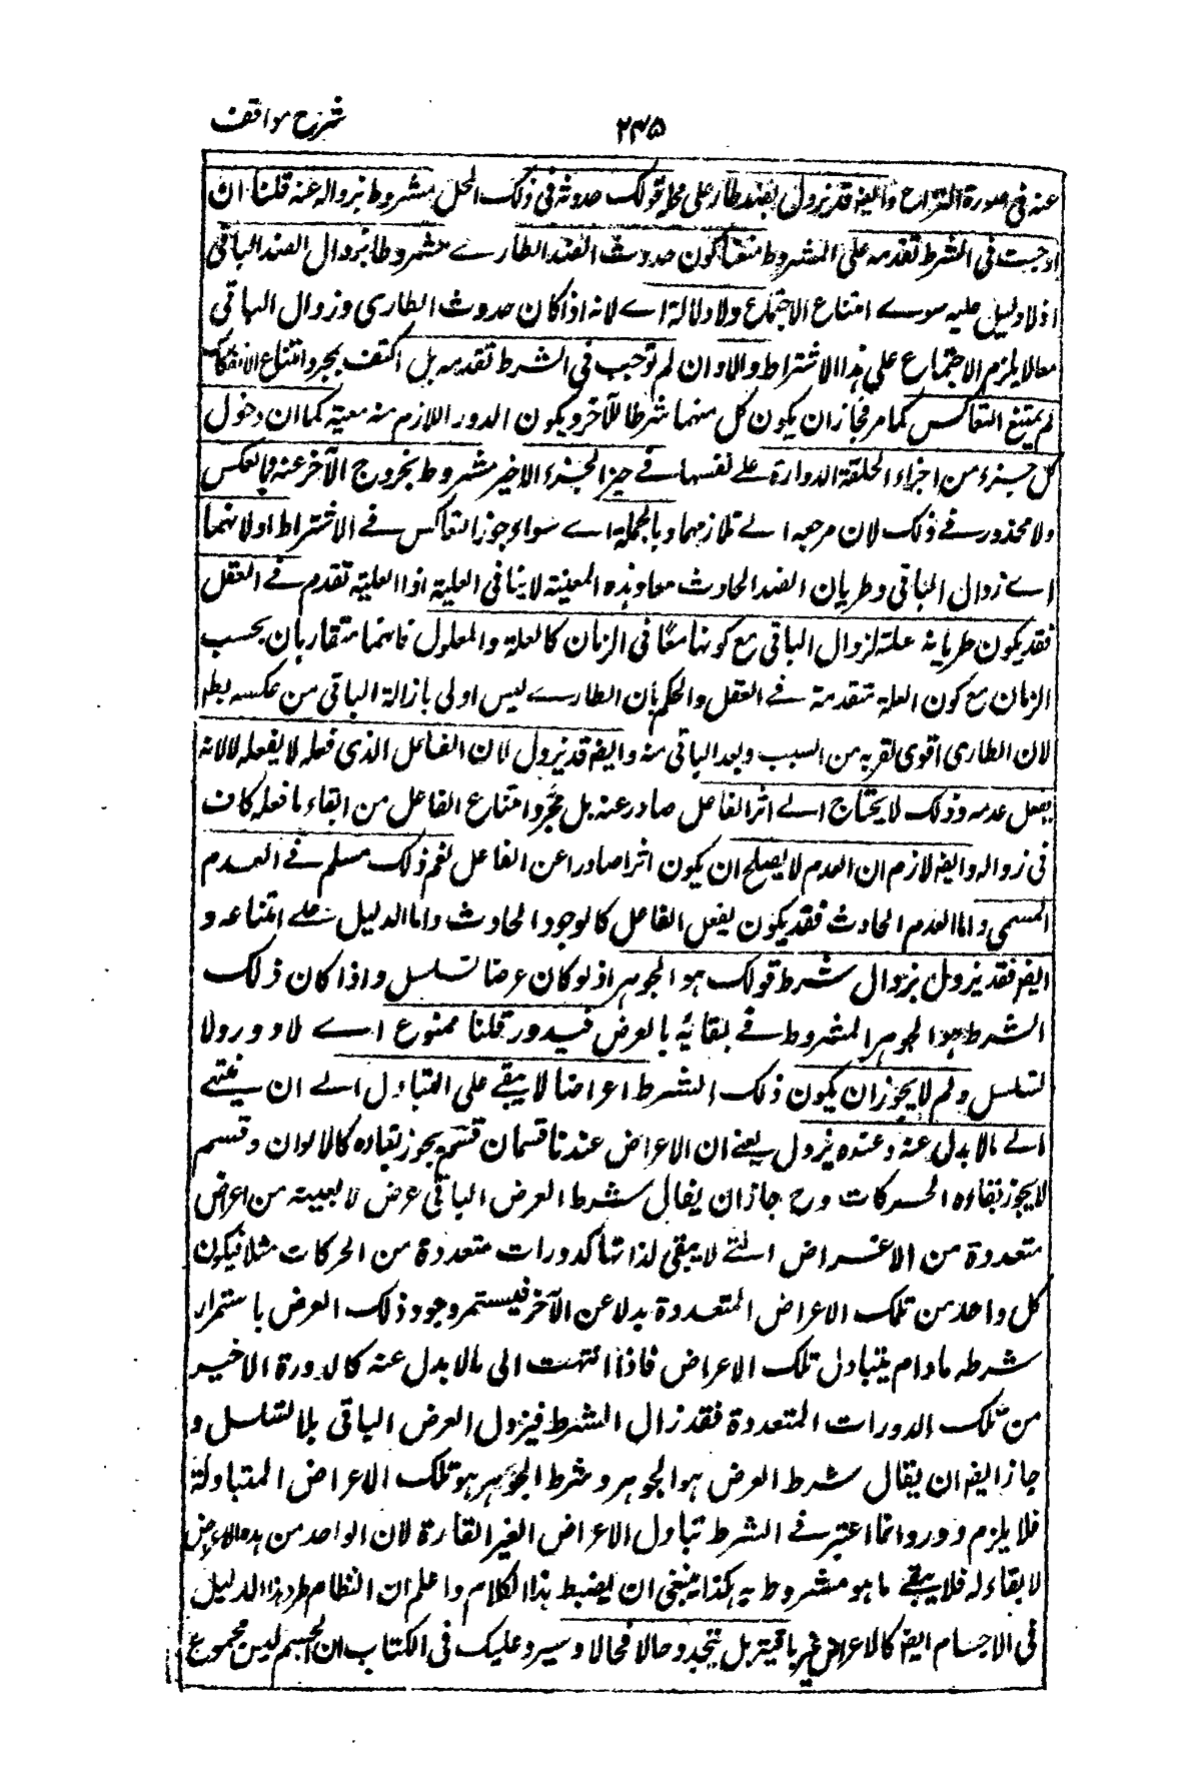 شرح مواقف
۲۴۵
عنه فی صورة النزاع وایضا قد یزول بضد طار علی محله قولک حدوثه فی ذلک المحل مشروط بزواله عنه قلنا ان
اوجبت فی الشرط تقدمه علی المشروط منعنا کون حدوث الضد الطارے مشروطا بزوال الضد الباقی
اذ لا دلیل علیه سوے امتناع الاجتماع ولا دلالة اے لانه اذا کان حدوث الطاری وزوال الباقی
معا لا یلزم الاجتماع علی هذا الاشتراط والا وان لم توجب فی الشرط تقدمه بل اکتفت بمجرد امتناع الانفکاک
لم یمتنع التعاکس کما مر فجاز ان یکون کل منهما شرطا للآخر ویکون الدور اللازم منه معیة کما ان دخول
کل جزء من اجزاء الحلقة الدوارة علے نفسها فے حیز الجزء الاخیر مشروط بخروج الآخر عنه وبالعکس
ولا محذور فے ذلک لان مرجعه الے تلازمهما وبالجملة اے سواء جوز التعاکس فے الاشتراط اولا فهما
اے زوال الباقی وطریان الضد الحادث معا وهذه المعیة لا ینافی العلیة اذ العلیة تقدم فے العقل
فقد یکون طریانه علة لزوال الباقی مع کونهما معًا فی الزمان کالعلة والمعلول فانهما متقاربان بحسب
الزمان مع کون العلة متقدمة فے العقل والحکم بأن الطارے لیس اولی بازالة الباقی من عکسه بط
لان الطاری اقوی لقربه من السبب وبعد الباقی منه وایضا قد یزول لان الفاعل الذی فعله لا یفعله لا لانه
یفعل عدمه وذلک لا یحتاج الے اثر الفاعل صادر عنه بل مجرد امتناع الفاعل من ابقاء ما فعله کاف
فی زواله وایضا لازم ان العدم لا یصلح ان یکون اثرا صادرا عن الفاعل نعم ذلک مسلم فے العدم
المسمی واما العدم الحادث فقد یکون بفعل الفاعل کالوجود الحادث واما الدلیل علے امتناعه و
ایضا فقد یزول بزوال شرط قولک هو الجوهر اذ لو کان عرضا تسلسل واذا کان ذلک
الشرط هو الجوهر المشروط فے بقائه بالعرض فیدور قلنا ممنوع اے لا دور ولا
تسلسل ولم لا یجوز ان یکون ذلک الشرط اعراضا لا یبقے علی التبادل الے ان ینتهے
الے ما لا بدل عنه وعنده یزول یعنے ان الاعراض عندنا قسمان قسم یجوز بقاءه کالالوان وقسم
لا یجوز بقاءه الحرکات وح جاز ان یقال شرط العرض الباقی عرض لا بعینه من اعراض
متعددة من الاعراض التے لا یبقی لذاتها کدورات متعددة من الحرکات مثلا فیکون
کل واحد من تلک الاعراض المتعددة بدلا عن الآخر فیستمر وجود ذلک العرض باستمرار
شرطه ما دام یتبادل تلک الاعراض فاذا انتهت الی ما لا بدل عنه کالدورة الاخیر
من تلک الدورات المتعددة فقد زال الشرط فیزول العرض الباقی بلا تسلسل و
جاز ایضا ان یقال شرط العرض هو الجوهر وشرط الجوهر هو تلک الاعراض المتبادلة
فلا یلزم دور وانما اعتبر فے الشرط تبادل الاعراض الغیر القارة لان الواحد من هذه الاعراض
لا بقاء له فلا یبقے ما هو مشروط به هکذا ینبغی ان یضبط هذا الکلام واعلم ان النظام طرد هذا الدلیل
فی الاجسام ایضا کالاعراض غیر باقیة بل یتجدد حالا فحالا وسیرد علیک فی الکتاب ان الجسم لیس مجموع